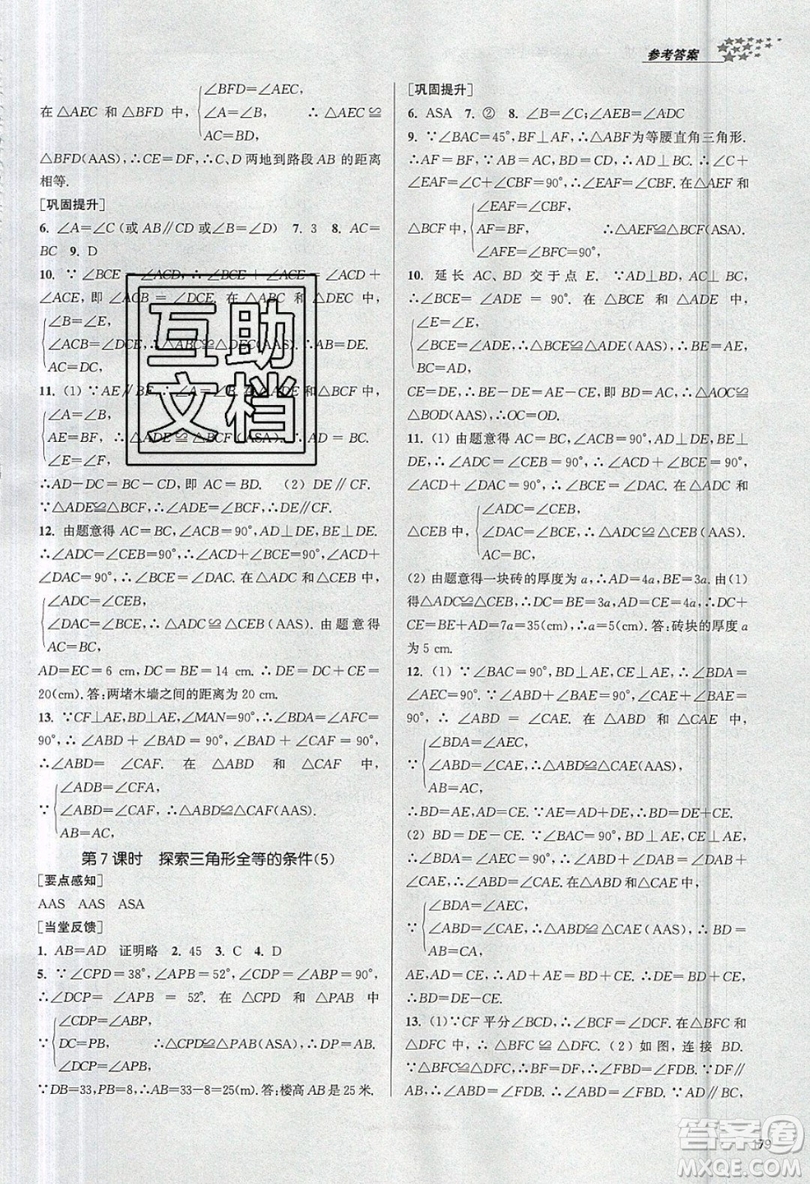 参考答案
∠BFD=∠AEC,
在 △AEC 和 △BFD 中, ∠A=∠B, ∴△AEC≌
AC=BD.
△BFD(AAS),∴CE=DF,∴C、D 两地到路段 AB 的距离
相等.
[巩固提升]
6. ∠A=∠C (或 AB∥CD 或 ∠B=∠D) 7. 3 8. AC=
BC 9. D
10. ∵ ∠BCE = ∠ACD, ∴ ∠BCE + ∠ACE = ∠ACD +
∠ACE, 即 ∠ACB = ∠DCE. 在 △ABC 和 △DEC 中,
∠B=∠E,
∠ACB=∠DCE,∴△ABC≌△DEC(AAS). ∴AB=DE.
AC=DC,
11. (1) ∵AE∥BF,∴∠A=∠B. 在 △ADE 和 △BCF 中,
∠A=∠B,
AE=BF, ∴ △ADE ≌ △BCF (ASA). ∴ AD = BC.
∠E=∠F,
∴AD-DC=BC-CD,即 AC=BD. (2) DE∥CF.
∵△ADE≌△BCF,∴∠ADE=∠BCF,∴DE∥CF.
12. 由题意得 AC=BC,∠ACB=90°,AD⊥DE,BE⊥DE.
∴∠ADC=∠CEB=90°,∴∠ACD+∠BCE=90°,∠ACD+
∠DAC=90°,∴∠DAC=∠BCE. 在△ADC 和△CEB 中,
∠ADC=∠CEB,
∠DAC=∠BCE,∴△ADC≌△CEB(AAS). 由题意得
AC=BC,
AD=EC=6 cm,DC=BE=14 cm. ∴DE=DC+CE=
20(cm). 答:两堵木墙之间的距离为 20 cm.
13. ∵CF⊥AE,BD⊥AE,∠MAN=90°,∴∠BDA=∠AFC=
90°,∴∠ABD+∠BAD=90°,∠BAD+∠CAF=90°,
∴∠ABD = ∠CAF. 在 △ABD 和 △CAF 中,
∠ADB=∠CFA,
∵ ∠ABD=∠CAF,∴△ABD≌△CAF(AAS).
AB=AC,
第 7 课时 探索三角形全等的条件(5)
[要点感知]
AAS AAS ASA
[当堂反馈]
1. AB=AD 证明略 2. 45 3. C 4. D
5. ∵∠CPD=38°,∠APB=52°,∠CDP=∠ABP=90°,
∴∠DCP = ∠APB = 52°. 在 △CPD 和 △PAB 中
∠CDP=∠ABP,
∵ DC=PB, ∴△CPD≌△PAB(ASA). ∴DP=AB.
∠DCP=∠APB,
∵DB=33,PB=8,∴AB=33-8=25(m). 答:楼高 AB 是 25 米.
[巩固提升]
6. ASA 7. ② 8. ∠B=∠C;∠AEB=∠ADC
9. ∵∠BAC=45°,BF⊥AF,∴△ABF 为等腰直角三角形.
∴AF=BF. ∵AF⊥BF,AD⊥BC,∴∠ADC=90°. ∴∠C+
∠EAF=∠C+∠CBF=90°,∴∠EAF=∠CBF. 在△AEF 与
∠EAF=∠CBF,
△BCF 中, AF=BF, ∴△AEF≌△BCF(ASA).
∠AFE=∠BFC=90°,
10. 延长 AC、BD 交于点 E. ∵AD⊥BD,AC⊥BC,
∴∠BCE=∠ADE=90°. 在△BCE 与△ADE 中,
∠BCE=∠ADE,
∠E=∠E, ∴△BCE≌△ADE(AAS). ∴BE=AE,
CE=DE,
CE=DE,∴BE-DE=AE-CE, 即 BD=AC,∴△AOC≌
△BOD(AAS),∴OC=OD.
11. (1) 由题意得 AC=BC,∠ACB=90°,AD⊥DE,BE⊥
DE,∴∠ADC=∠CEB=90°,∴∠ACD+∠BCE=90°,
∠ACD+∠DAC=90°,∴∠BCE=∠DAC. 在△ADC 和
∠ADC=∠CEB,
△CEB 中, ∠DAC=∠ECB,∴△ADC≌△CEB(AAS).
AC=CB,
(2) 由题意得一块砖的厚度为 a,∴AD=4a,BE=3a,由(1)
得△ADC≌△CEB,∴DC=BE=3a,AD=CE=4a,
∴DC+CE=BE+AD=7a=35(cm),∴a=5. 答:砖块的厚度 a
为 5 cm.
12. (1) ∵∠BAC=90°,BD⊥DE,CE⊥DE,∴∠BDA=
∠AEC=90°,∵∠BAD+∠CAE=90°,∠BAD+∠ABD=
90°,∴∠ABD=∠CAE. 在△ABD 和△CAE 中,
∠BDA=∠AEC,
∠ABD=∠CAE,∴△ABD≌△CAE(AAS),
AB=CA,
∴BD=AE,AD=CE. ∵DE=AD+AE,∴DE=BD+CE.
(2) ∵∠BAC=90°,∴∠BAD+∠CAE=90°,∠BAD+
∠ABD=90°,∴∠ABD=∠CAE. 在△ABD 和△CAE 中,
∠BDA=∠AEC,
∠ABD=∠CAE,∴△ABD≌△CAE(AAS),∴BD=
AB=CA,
AE,AD=CE. ∵DE=AE-AD,∴DE=BD-CE.
13. (1)∵CF 平分∠BCD,∴∠BCF=∠DCF. 在△BFC 和
△DFC 中,∴△BFC≌△DFC. (2) 如图,连接 BD.
∵△BFC≌△DFC,∴BF=DF,∴∠FBD=∠FDB.
∵DF∥AB,∴∠ABD=∠FDB. ∴∠ABD=∠FBD. ∵AD∥BC,
互助文档
179
答案圈
MXQE.COM